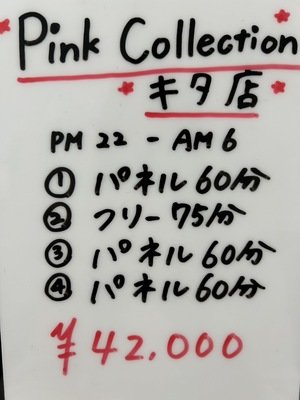 Pink Collection
キタ店
PM 22 - AM 6
① パネル 60分
② フリー 75分
③ パネル 60分
④ パネル 60分
¥42.000